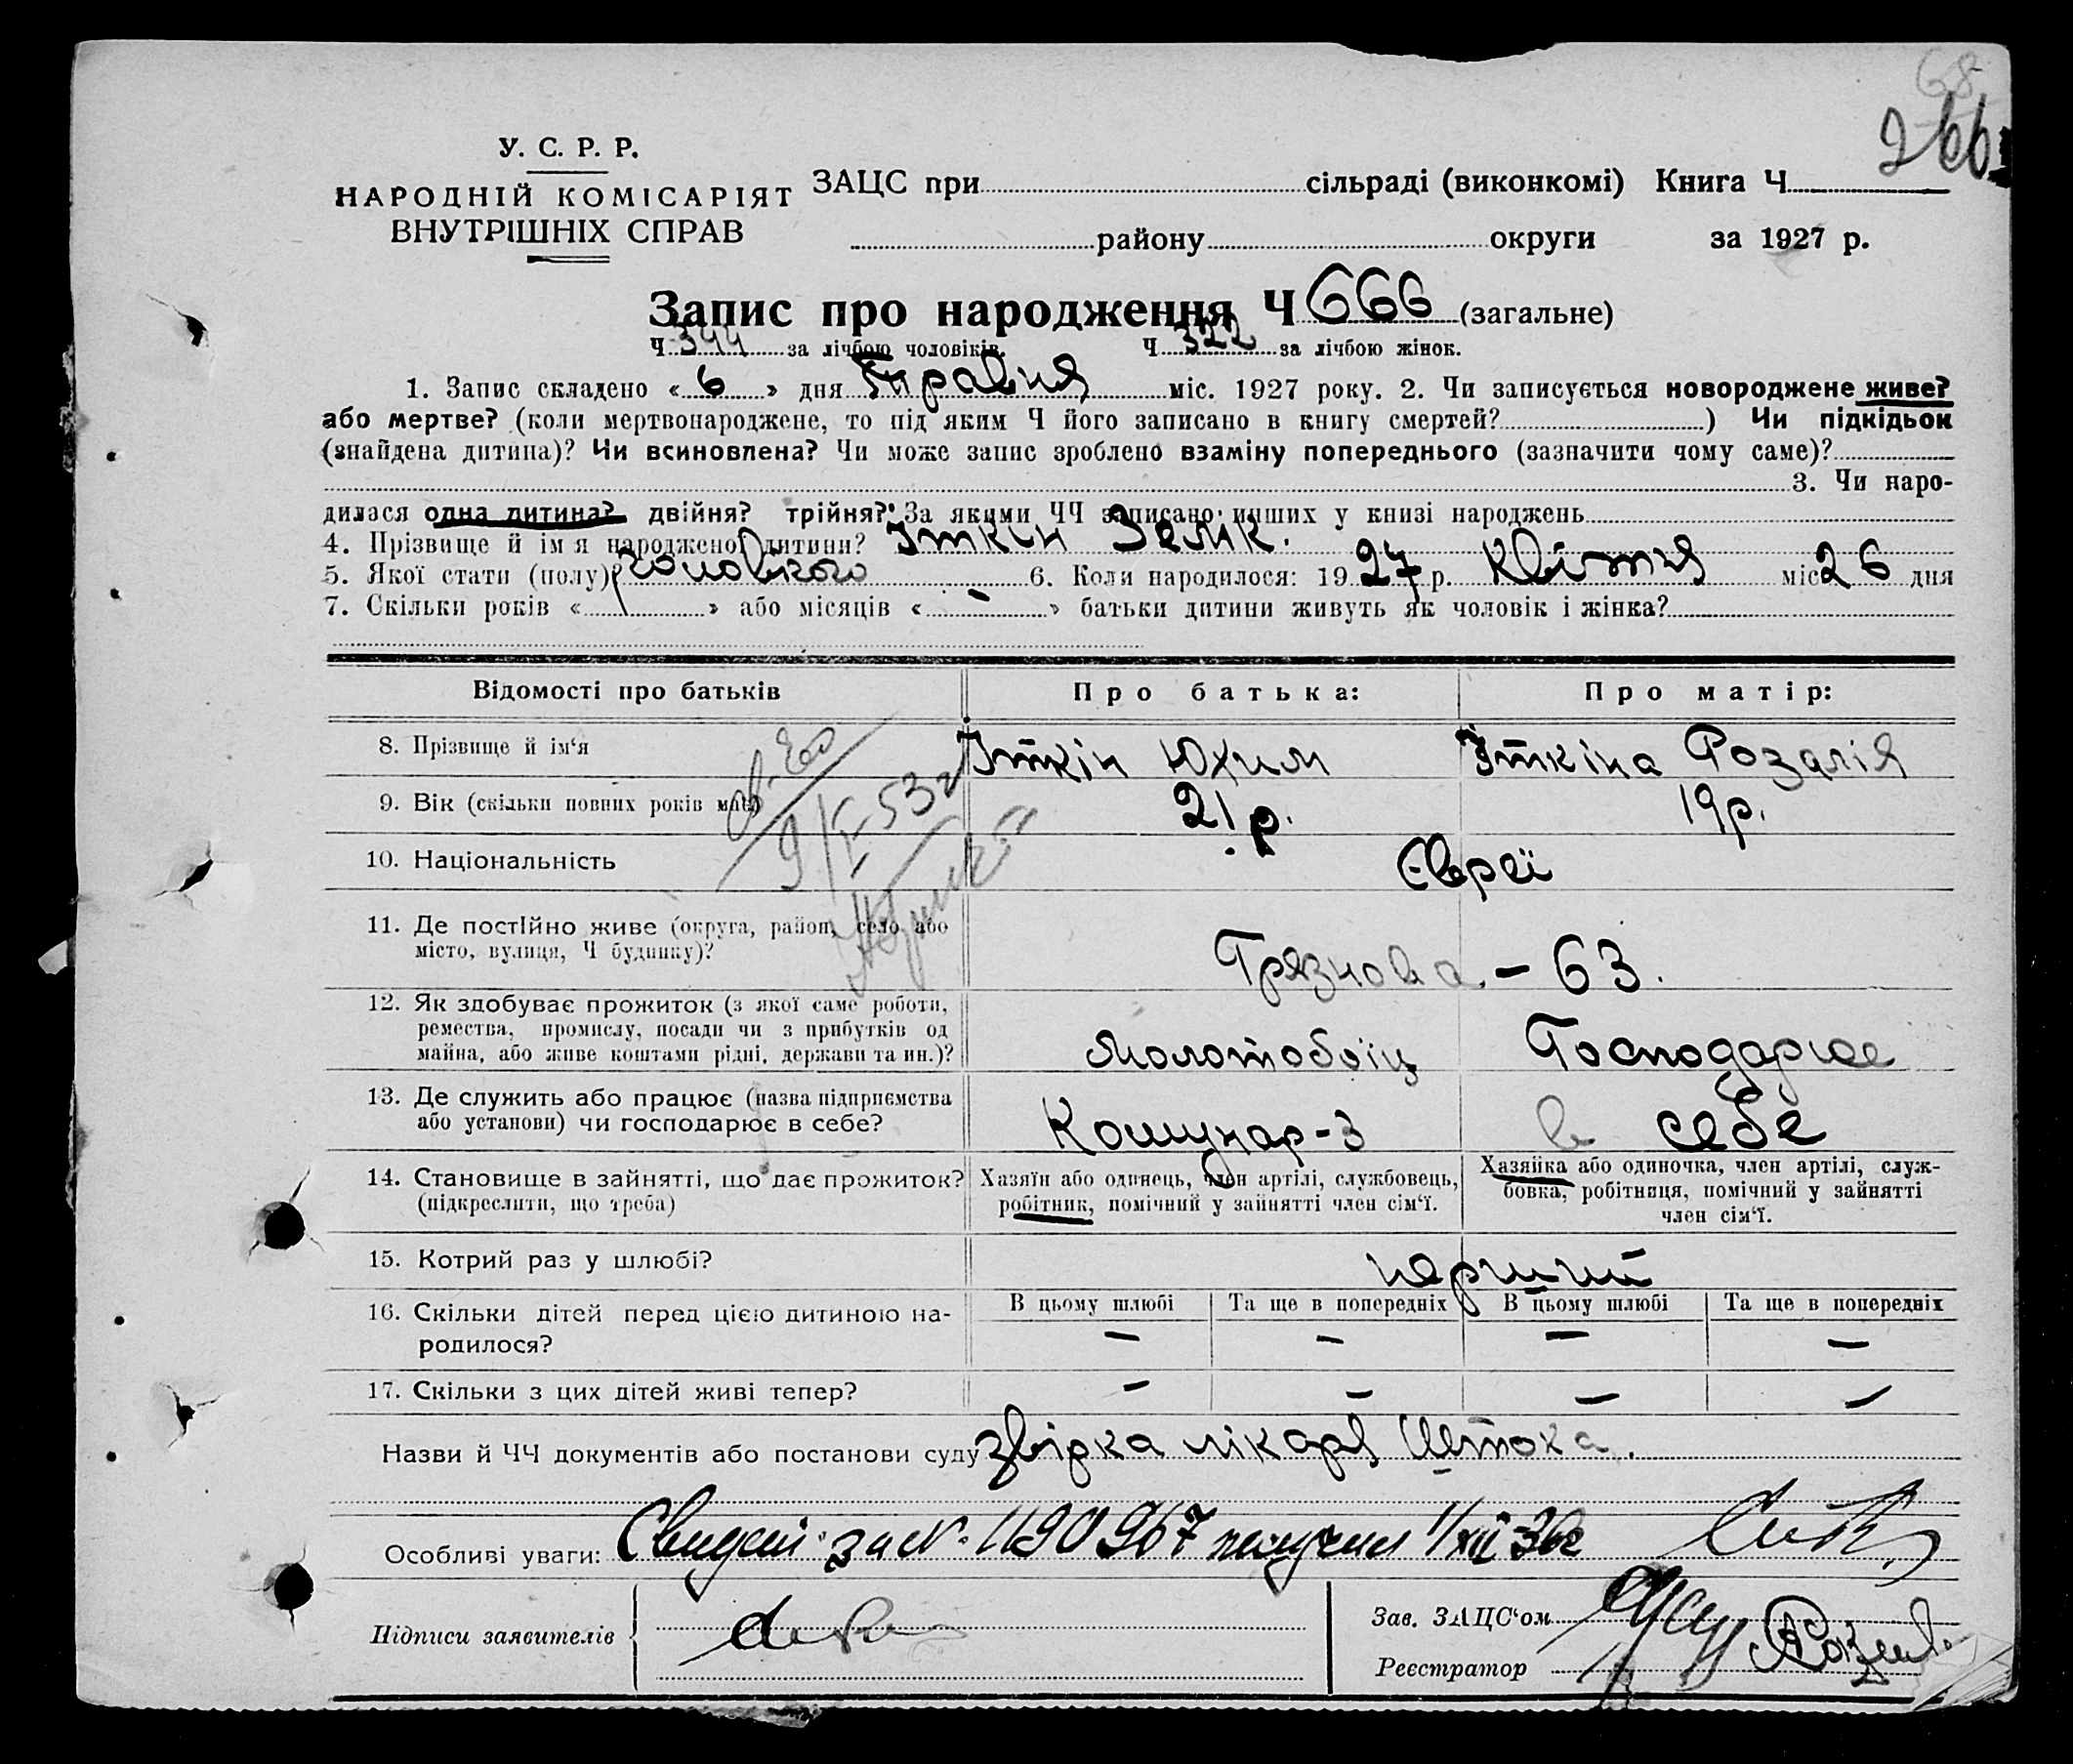 68
266
У. С. Р. Р.
НАРОДНІЙ КОМІСАРІЯТ
ВНУТРІШНІХ СПРАВ
ЗАЦС при сільраді (виконкомі) Книга Ч
району округи за 1927 р.
Запис про народження Ч 666 (загальне)
Ч 344 за лічбою чоловіків. Ч 322 за лічбою жінок.
1. Запис складено « 6 » дня Травня міс. 1927 року. 2. Чи записується новороджене живе?
або мертве? (коли мертвонароджене, то під яким Ч його записано в книгу смертей? ) Чи підкідьок
(знайдена дитина)? Чи всиновлена? Чи може запис зроблено взаміну попереднього (зазначити чому саме)?
3. Чи наро-
дилася одна дитина? двійня? трійня? За якими ЧЧ записано инших у книзі народжень
4. Прізвище й ім я народженої дитини? Іткін Зелик.
5. Якої стати (полу)? чоловікого 6. Коли народилося: 19 27 р. Квітня міс 26 дня
7. Скільки років « » або місяців « - » батьки дитини живуть як чоловік і жінка?
Відомості про батьків Про батька: Про матір:
8. Прізвище й ім‘я Іткін Юхим Іткіна Розалія
9. Вік (скільки повних років має) 21 р. 19 р.
10. Національність Євреї
11. Де постійно живе (округа, район, село або
місто, вулиця, Ч будинку)?
Грязнова - 63.
12. Як здобуває прожиток (з якої саме роботи,
ремества, промислу, посади чи з прибутків од
майна, або живе коштами рідні, держави та ин.)?
Молотобоїц Господарює
13. Де служить або працює (назва підприємства
або установи) чи господарює в себе?
Комунар-3 в себе
14. Становище в зайнятті, що дає прожиток?
(підкреслити, що треба)
Хазяїн або одинець, член артілі, службовець,
робітник, помічний у зайнятті член сім‘ї.
Хазяйка або одиночка, член артілі, служ-
бовка, робітниця, помічний у зайнятті
член сім‘ї.
15. Котрий раз у шлюбі? перший
16. Скільки дітей перед цією дитиною на-
родилося?
В цьому шлюбі Та ще в попередніх В цьому шлюбі Та ще в попередніх
- - - -
17. Скільки з цих дітей живі тепер? - - - -
Назви й ЧЧ документів або постанови суду звірка лікаря Штока.
Особливі уваги: Свидет. за N. 1190967 получил 1/XII 36г
Підписи заявителів
Зав. ЗАЦС‘ом
Реєстратор